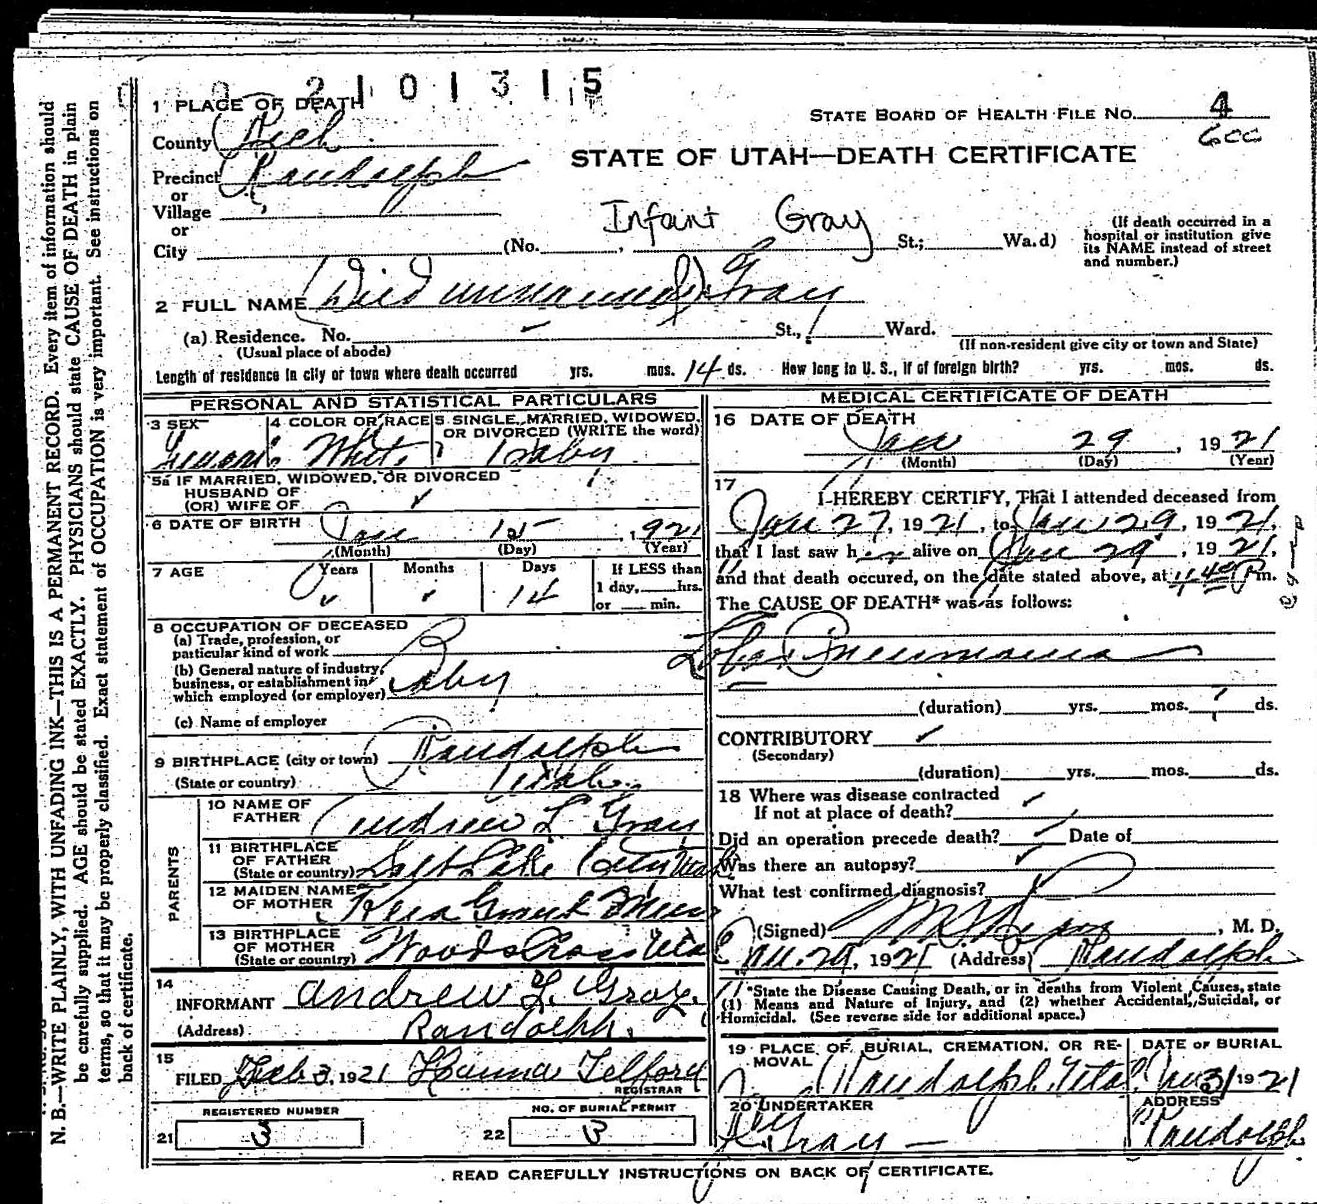 2101315
1 PLACE OF DEATH
STATE BOARD OF HEALTH FILE NO. 4
600
County Rich
STATE OF UTAH—DEATH CERTIFICATE
Precinct Randolph
or
Village
or
City
Infant Gray
(No. , St.; Wa.d)
(If death occurred in a
hospital or institution give
its NAME instead of street
and number.)
2 FULL NAME (Died unnamed) Gray
(a) Residence. No. St., Ward.
(Usual place of abode)
(If non-resident give city or town and State)
Length of residence in city or town where death occurred yrs. mos. 14 ds. How long in U. S., if of foreign birth? yrs. mos. ds.
PERSONAL AND STATISTICAL PARTICULARS
3 SEX
4 COLOR OR RACE White
5 SINGLE, MARRIED, WIDOWED,
OR DIVORCED (WRITE the word)
Baby
5a IF MARRIED, WIDOWED, OR DIVORCED
HUSBAND OF
(OR) WIFE OF
6 DATE OF BIRTH Jan 15, 1921
(Month) (Day) (Year)
7 AGE Years Months Days 14
If LESS than
1 day, hrs.
or min.
8 OCCUPATION OF DECEASED
(a) Trade, profession, or
particular kind of work
(b) General nature of industry,
business, or establishment in
which employed (or employer)
Baby
(c) Name of employer
9 BIRTHPLACE (city or town) Randolph
(State or country) Utah
PARENTS
10 NAME OF
FATHER Andrew L Gray
11 BIRTHPLACE
OF FATHER
(State or country) Salt Lake City Utah
12 MAIDEN NAME
OF MOTHER
13 BIRTHPLACE
OF MOTHER
(State or country) Woods Cross Utah
14
INFORMANT Andrew L. Gray.
(Address) Randolph.
15
FILED Feb 3, 1921 Hanna Telford
REGISTRAR
REGISTERED NUMBER
21 3
NO. OF BURIAL PERMIT
22 3
MEDICAL CERTIFICATE OF DEATH
16 DATE OF DEATH
Jan 29, 1921
(Month) (Day) (Year)
17
I HEREBY CERTIFY, That I attended deceased from
Jan 27, 1921, to Jan 29, 1921,
that I last saw her alive on Jan 29, 1921,
and that death occured, on the date stated above, at P m.
The CAUSE OF DEATH* was as follows:
Lobar Pneumonia
(duration) yrs. mos. ds.
CONTRIBUTORY
(Secondary)
(duration) yrs. mos. ds.
18 Where was disease contracted
If not at place of death?
Did an operation precede death? Date of
Was there an autopsy?
What test confirmed diagnosis?
(Signed) , M. D.
Jan. 29, 1921 (Address) Randolph
*State the Disease Causing Death, or in deaths from Violent Causes, state
(1) Means and Nature of Injury, and (2) whether Accidental, Suicidal, or
Homicidal. (See reverse side for additional space.)
19 PLACE OF BURIAL, CREMATION, OR RE-
MOVAL
Randolph, Utah
DATE OF BURIAL
Jan 31 1921
20 UNDERTAKER
Gray
ADDRESS
Randolph
READ CAREFULLY INSTRUCTIONS ON BACK OF CERTIFICATE.
N. B.—WRITE PLAINLY, WITH UNFADING INK—THIS IS A PERMANENT RECORD. Every item of information should
be carefully supplied. AGE should be stated EXACTLY. PHYSICIANS should state CAUSE OF DEATH in plain
terms, so that it may be properly classified. Exact statement of OCCUPATION is very important. See instructions on
back of certificate.